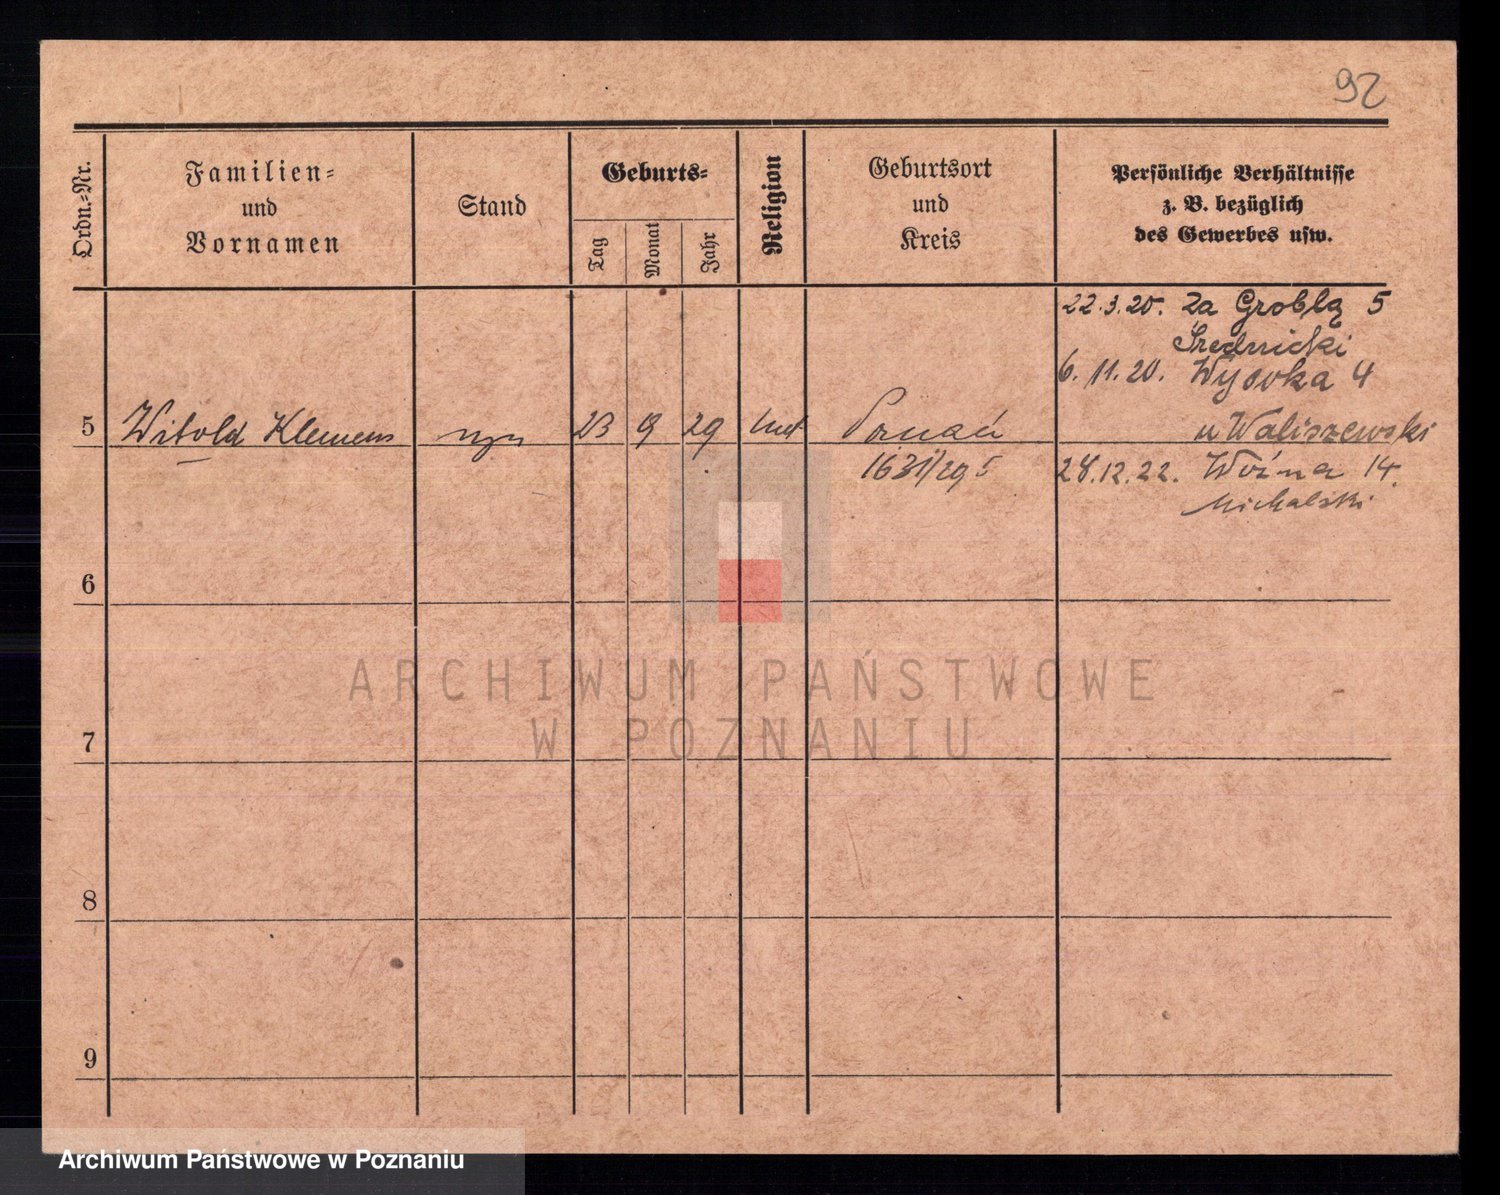 92
Ordn.-Nr.
Familien-
und
Vornamen
Stand
Geburts-
Tag
Monat
Jahr
Religion
Geburtsort
und
Kreis
Persönliche Verhältnisse
z. B. bezüglich
des Gewerbes usw.
22.3.20. Za Groblą 5
Średnicki
6.11.20. Wysoka 4
5 Witold Klemens syn 23 9 29 kat Poznań u Waliszewski
1631/29 5 28.12.22. Woźna 14.
Michalski
6
7
8
9
ARCHIWUM PAŃSTWOWE
W POZNANIU
Archiwum Państwowe w Poznaniu